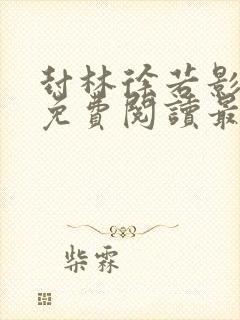 封林徐若影
免費閱讀最
柴霖